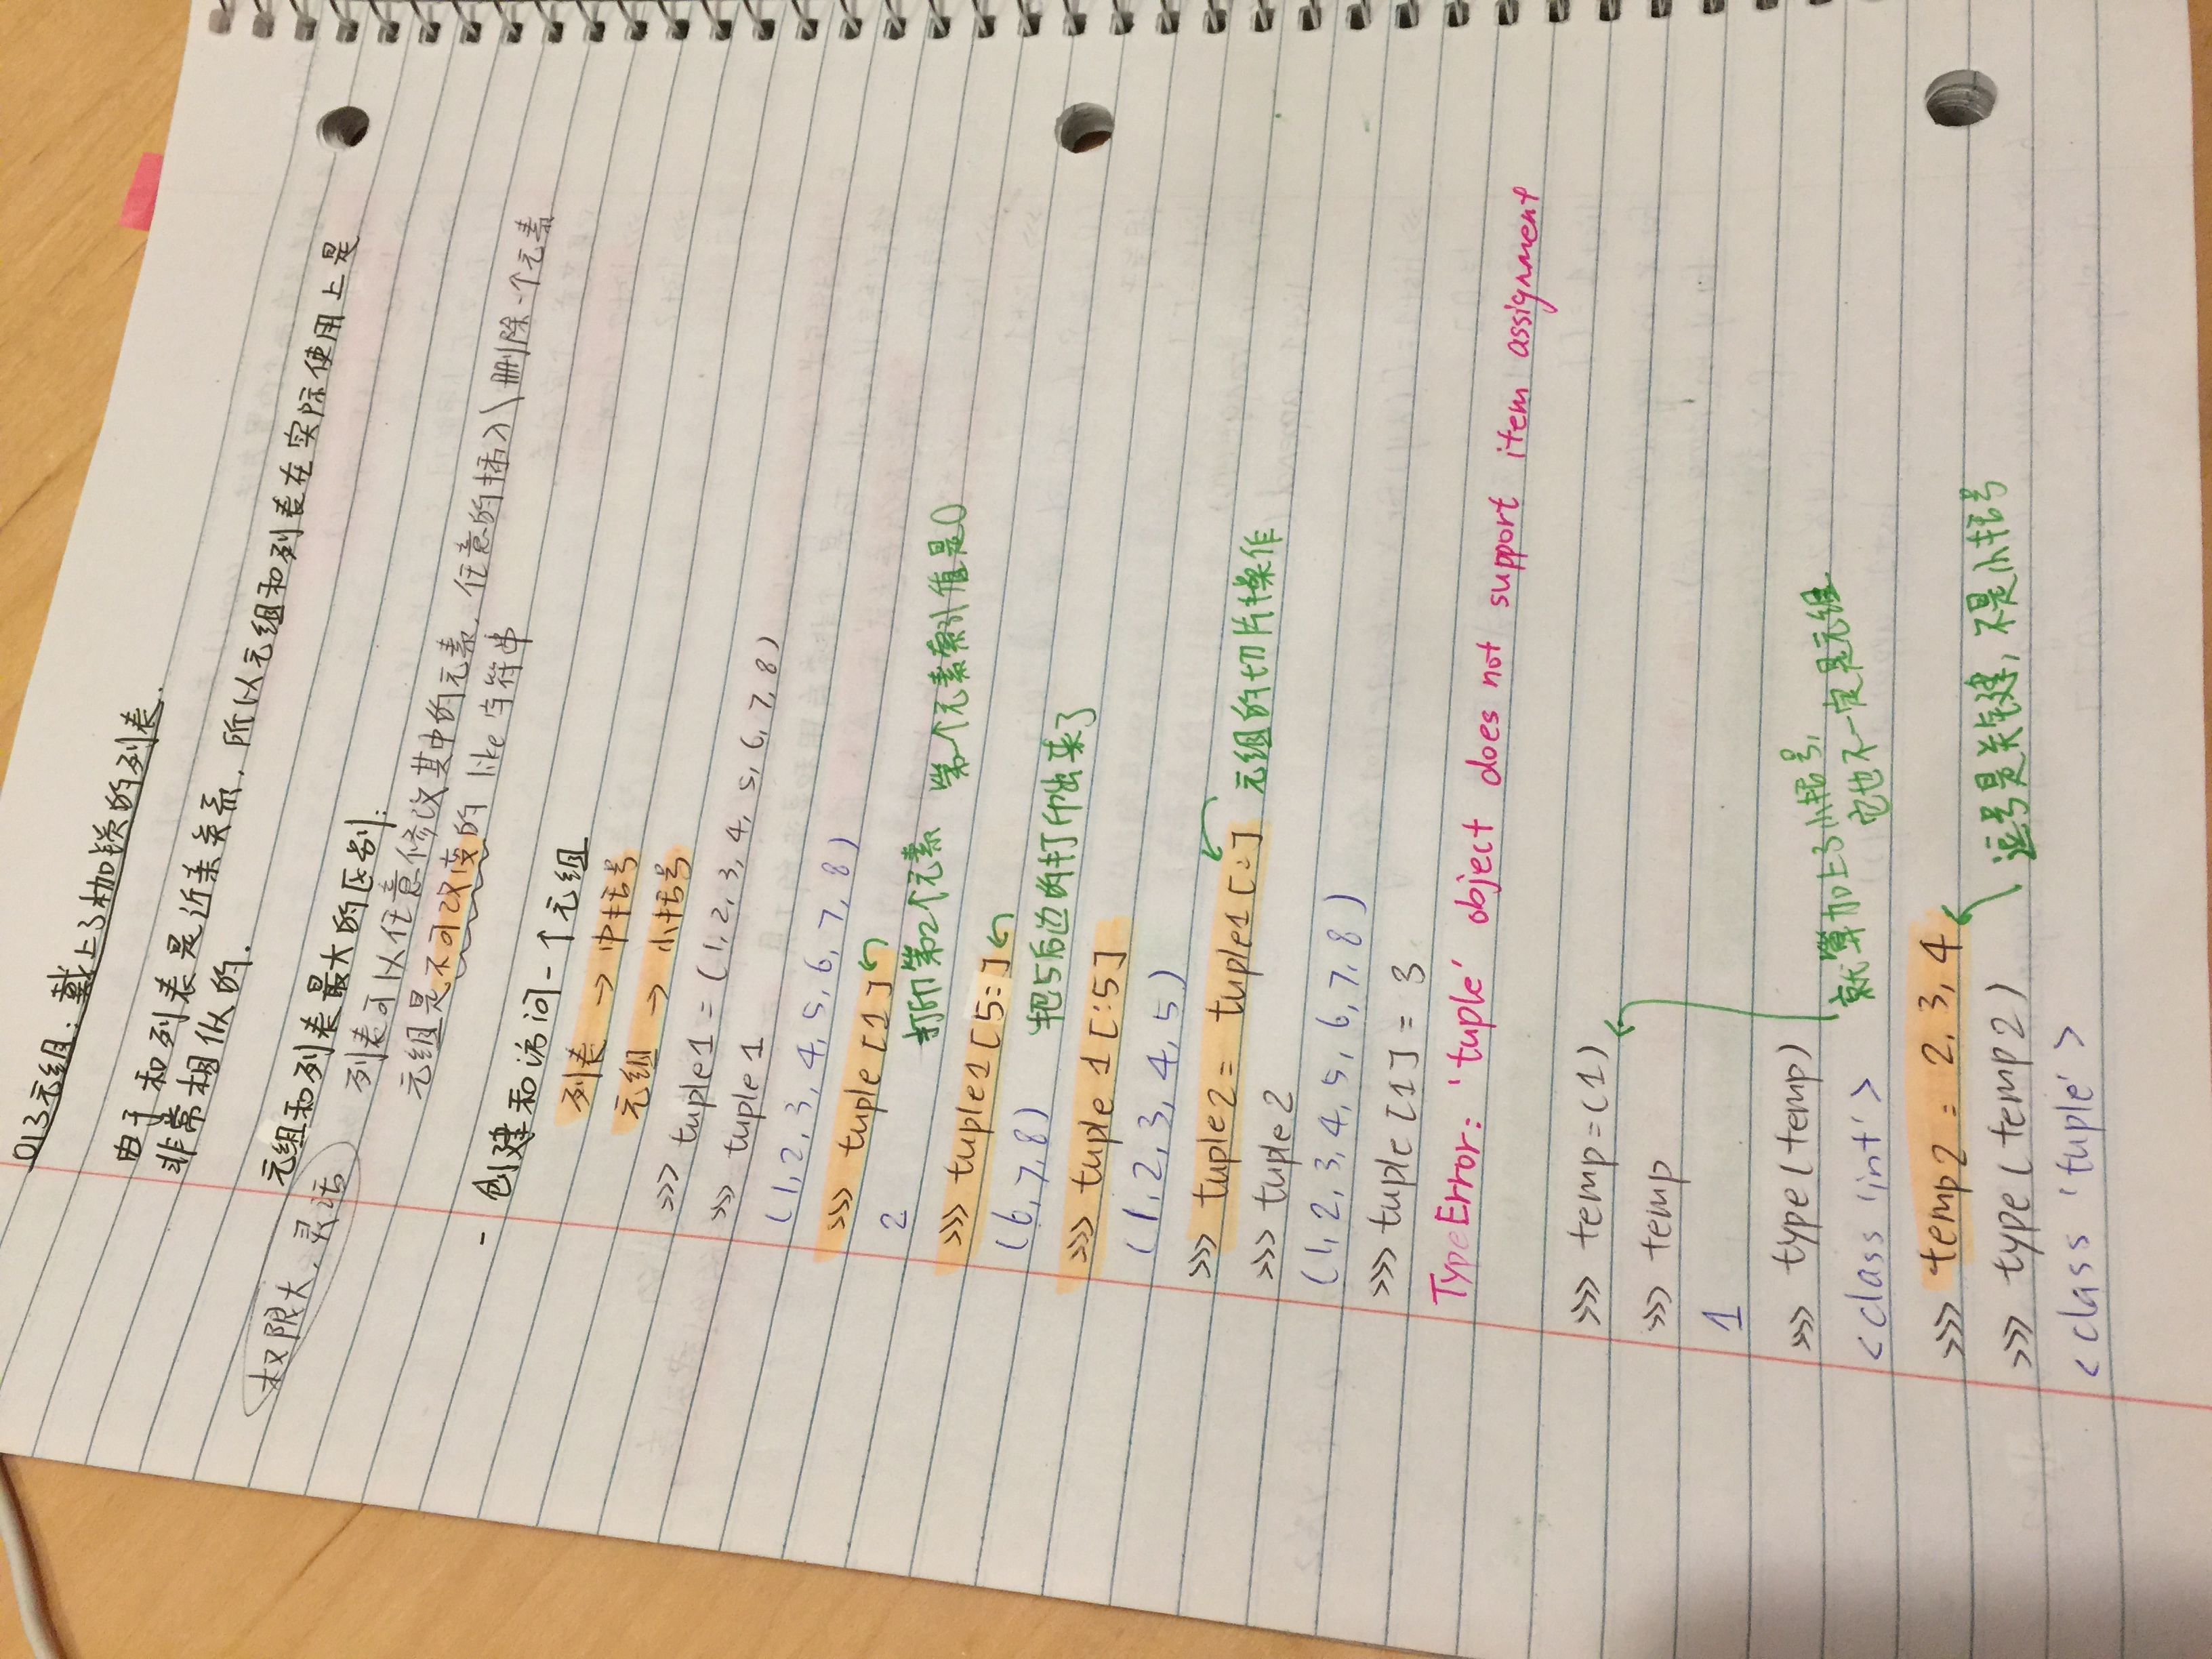 013元组：戴上了枷锁的列表.
由于和列表是近亲关系，所以元组和列表在实际使用上是
非常相似的.
元组和列表最大的区别：
权限大，灵活
列表可以任意修改其中的元素，任意的插入\删除一个元素
元组是不可改变的 like 字符串
- 创建和访问一个元组
列表 → 中括号
元组 → 小括号
>>> tuple1 = (1,2,3,4,5,6,7,8)
>>> tuple1
(1,2,3,4,5,6,7,8)
>>> tuple[1]
2 打印第2个元素 第一个元素索引值是0
>>> tuple1[5:]
(6,7,8) 把5后边的打印出来了
>>> tuple1[:5]
(1,2,3,4,5)
>>> tuple2 = tuple1[:]
>>> tuple2 元组的切片操作
(1,2,3,4,5,6,7,8)
>>> tuple[1] = 3
TypeError: 'tuple' object does not support item assignment
>>> temp=(1)
>>> temp
1
>>> type(temp) 就算加上了小括号，
<class 'int'> 它也不一定是元组
>>> temp2 = 2,3,4
>>> type(temp2) 逗号是关键，不是小括号
<class 'tuple'>